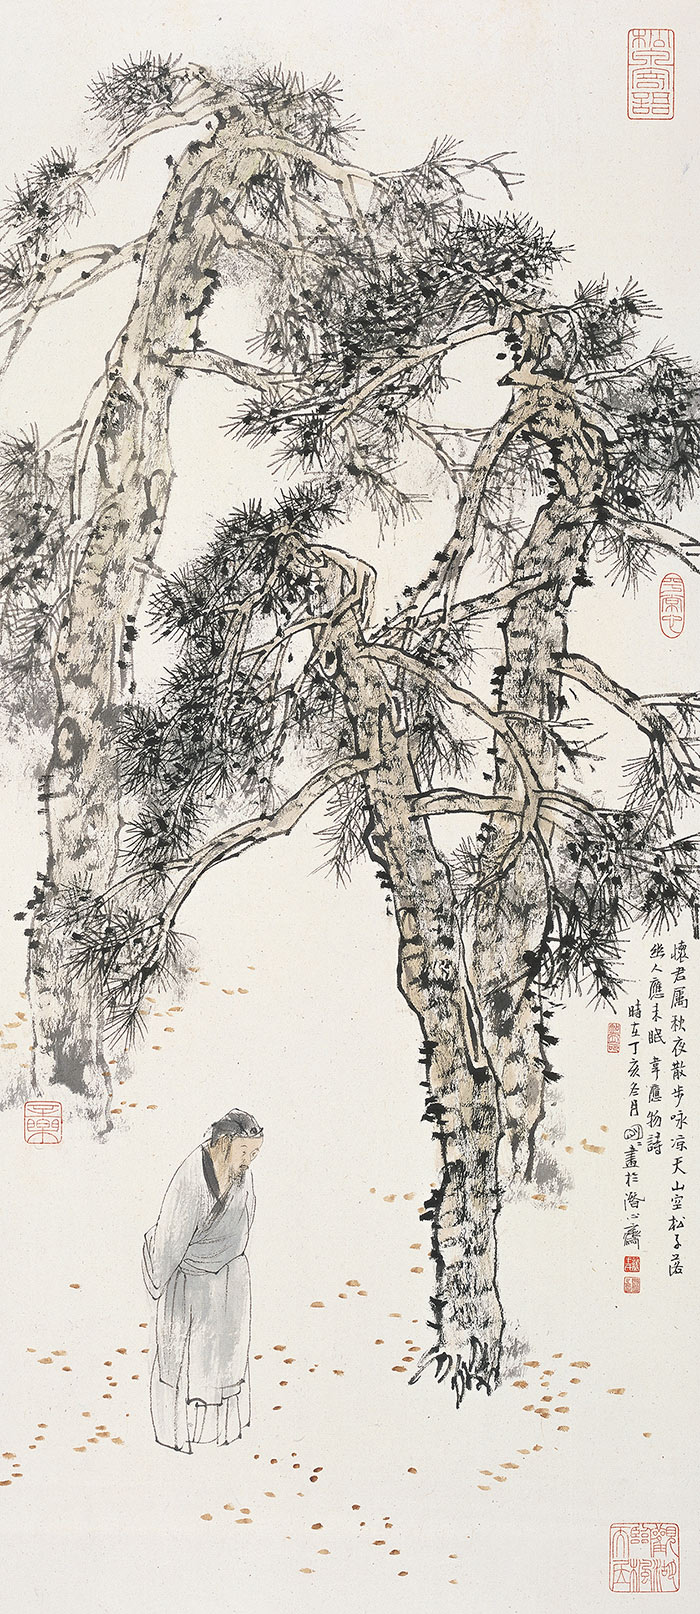 懷君屬秋夜散步咏凉天山空松子落
幽人應未眠 韋應物詩
時在丁亥冬月 畫於潛心齋
平常心